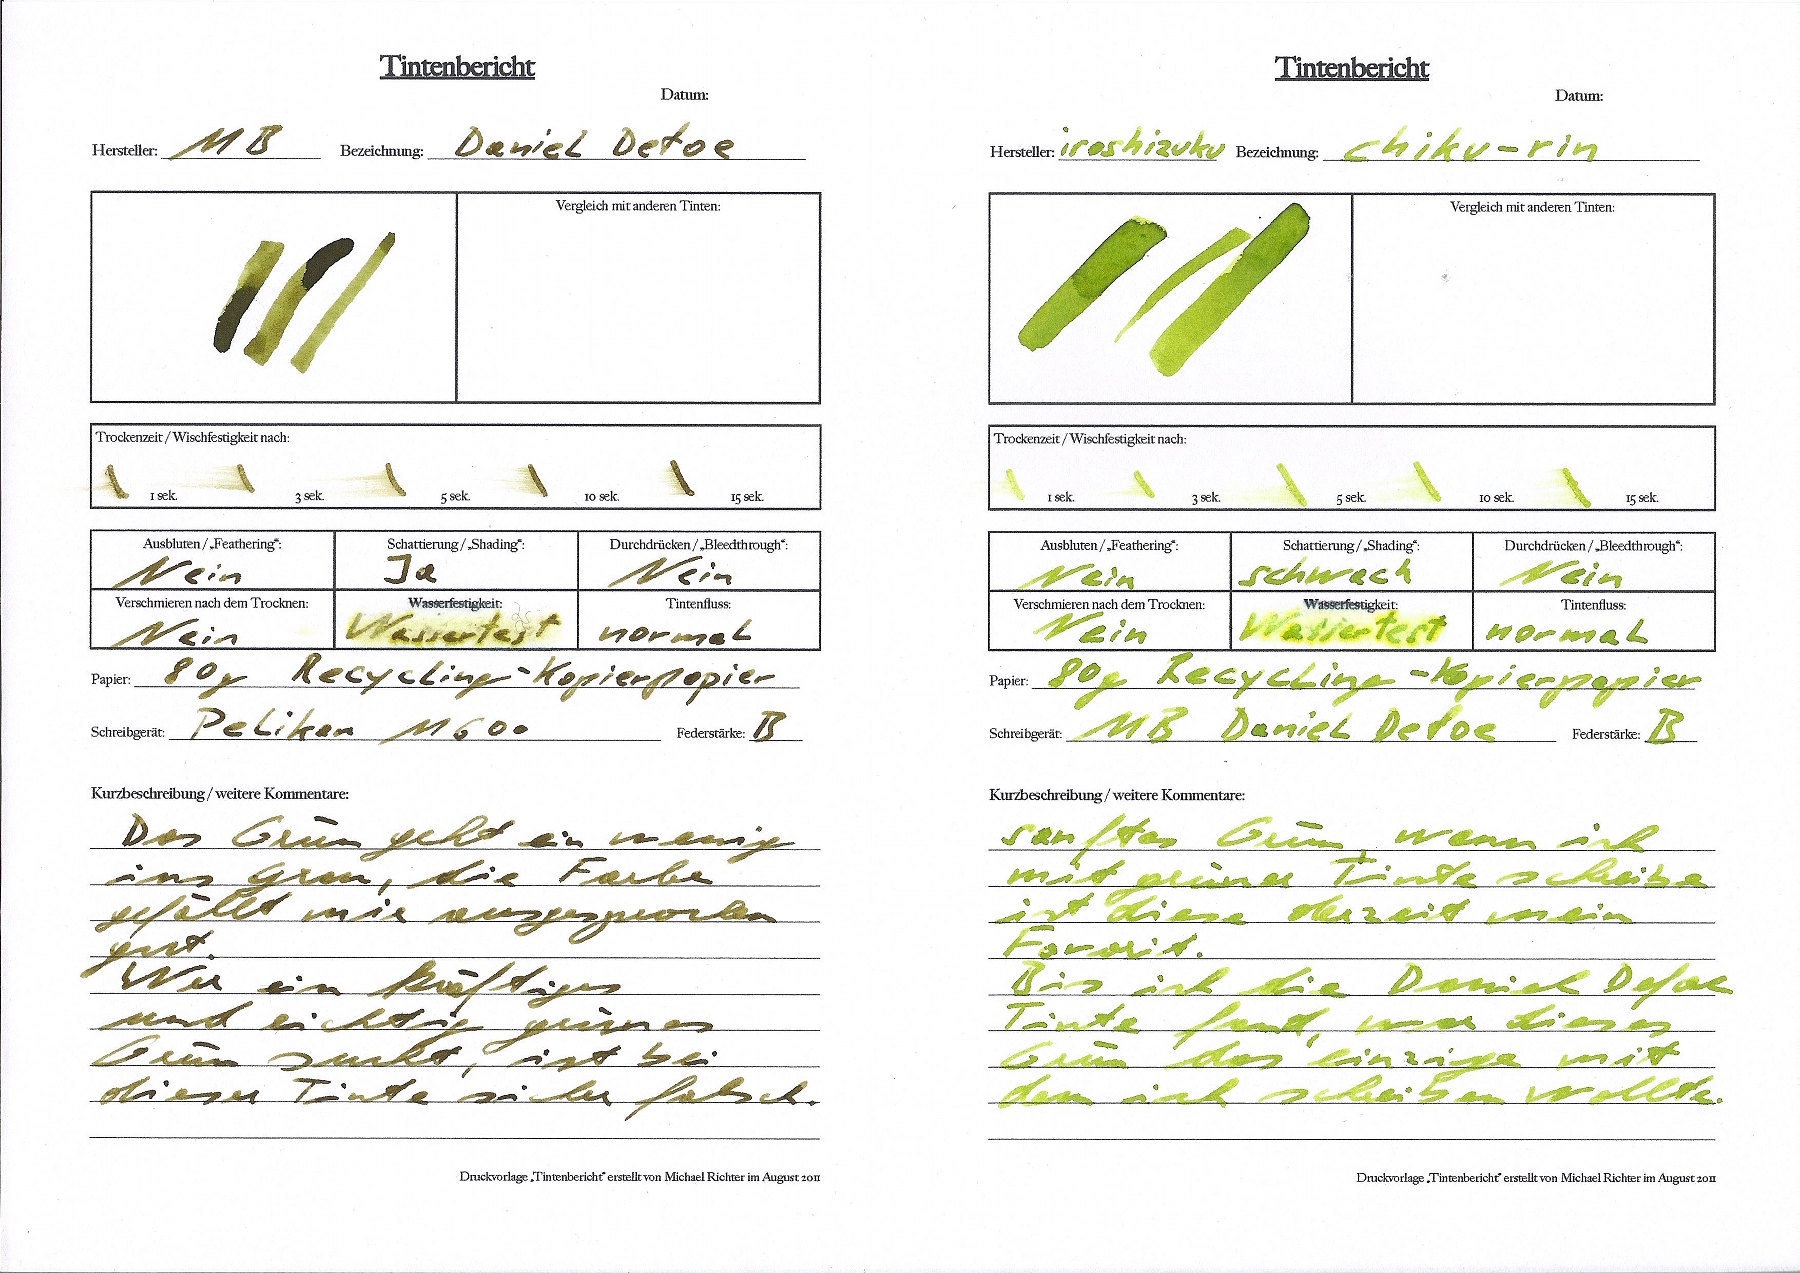 Tintenbericht
Datum:
Hersteller: MB Bezeichnung: Daniel Defoe
Vergleich mit anderen Tinten:
Trockenzeit / Wischfestigkeit nach:
1 sek. 3 sek. 5 sek. 10 sek. 15 sek.
Ausbluten / „Feathering“: Schattierung / „Shading“: Durchdrücken / „Bleedthrough“:
Nein Ja Nein
Verschmieren nach dem Trocknen: Wasserfestigkeit: Tintenfluss:
Nein Wassertest normal
Papier: 80g Recycling-Kopierpapier
Schreibgerät: Pelikan M600 Federstärke: B
Kurzbeschreibung / weitere Kommentare:
Das Grün geht ein wenig
ins Grau, die Farbe
gefällt mir ausgesprochen
gut.
Wer ein kräftiges
und richtig grünes
Grün sucht, ist bei
dieser Tinte sicher falsch.
Druckvorlage „Tintenbericht“ erstellt von Michael Richter im August 2011
Tintenbericht
Datum:
Hersteller: iroshizuku Bezeichnung: chiku-rin
Vergleich mit anderen Tinten:
Trockenzeit / Wischfestigkeit nach:
1 sek. 3 sek. 5 sek. 10 sek. 15 sek.
Ausbluten / „Feathering“: Schattierung / „Shading“: Durchdrücken / „Bleedthrough“:
Nein schwach Nein
Verschmieren nach dem Trocknen: Wasserfestigkeit: Tintenfluss:
Nein Wassertest normal
Papier: 80g Recycling-Kopierpapier
Schreibgerät: MB Daniel Defoe Federstärke: B
Kurzbeschreibung / weitere Kommentare:
sanftes Grün, wenn ich
mit grüner Tinte schreibe
ist diese derzeit mein
Favorit.
Bis ich die Daniel Defoe
Tinte fand, war dieses
Grün das einzige mit
dem ich schreiben wollte.
Druckvorlage „Tintenbericht“ erstellt von Michael Richter im August 2011